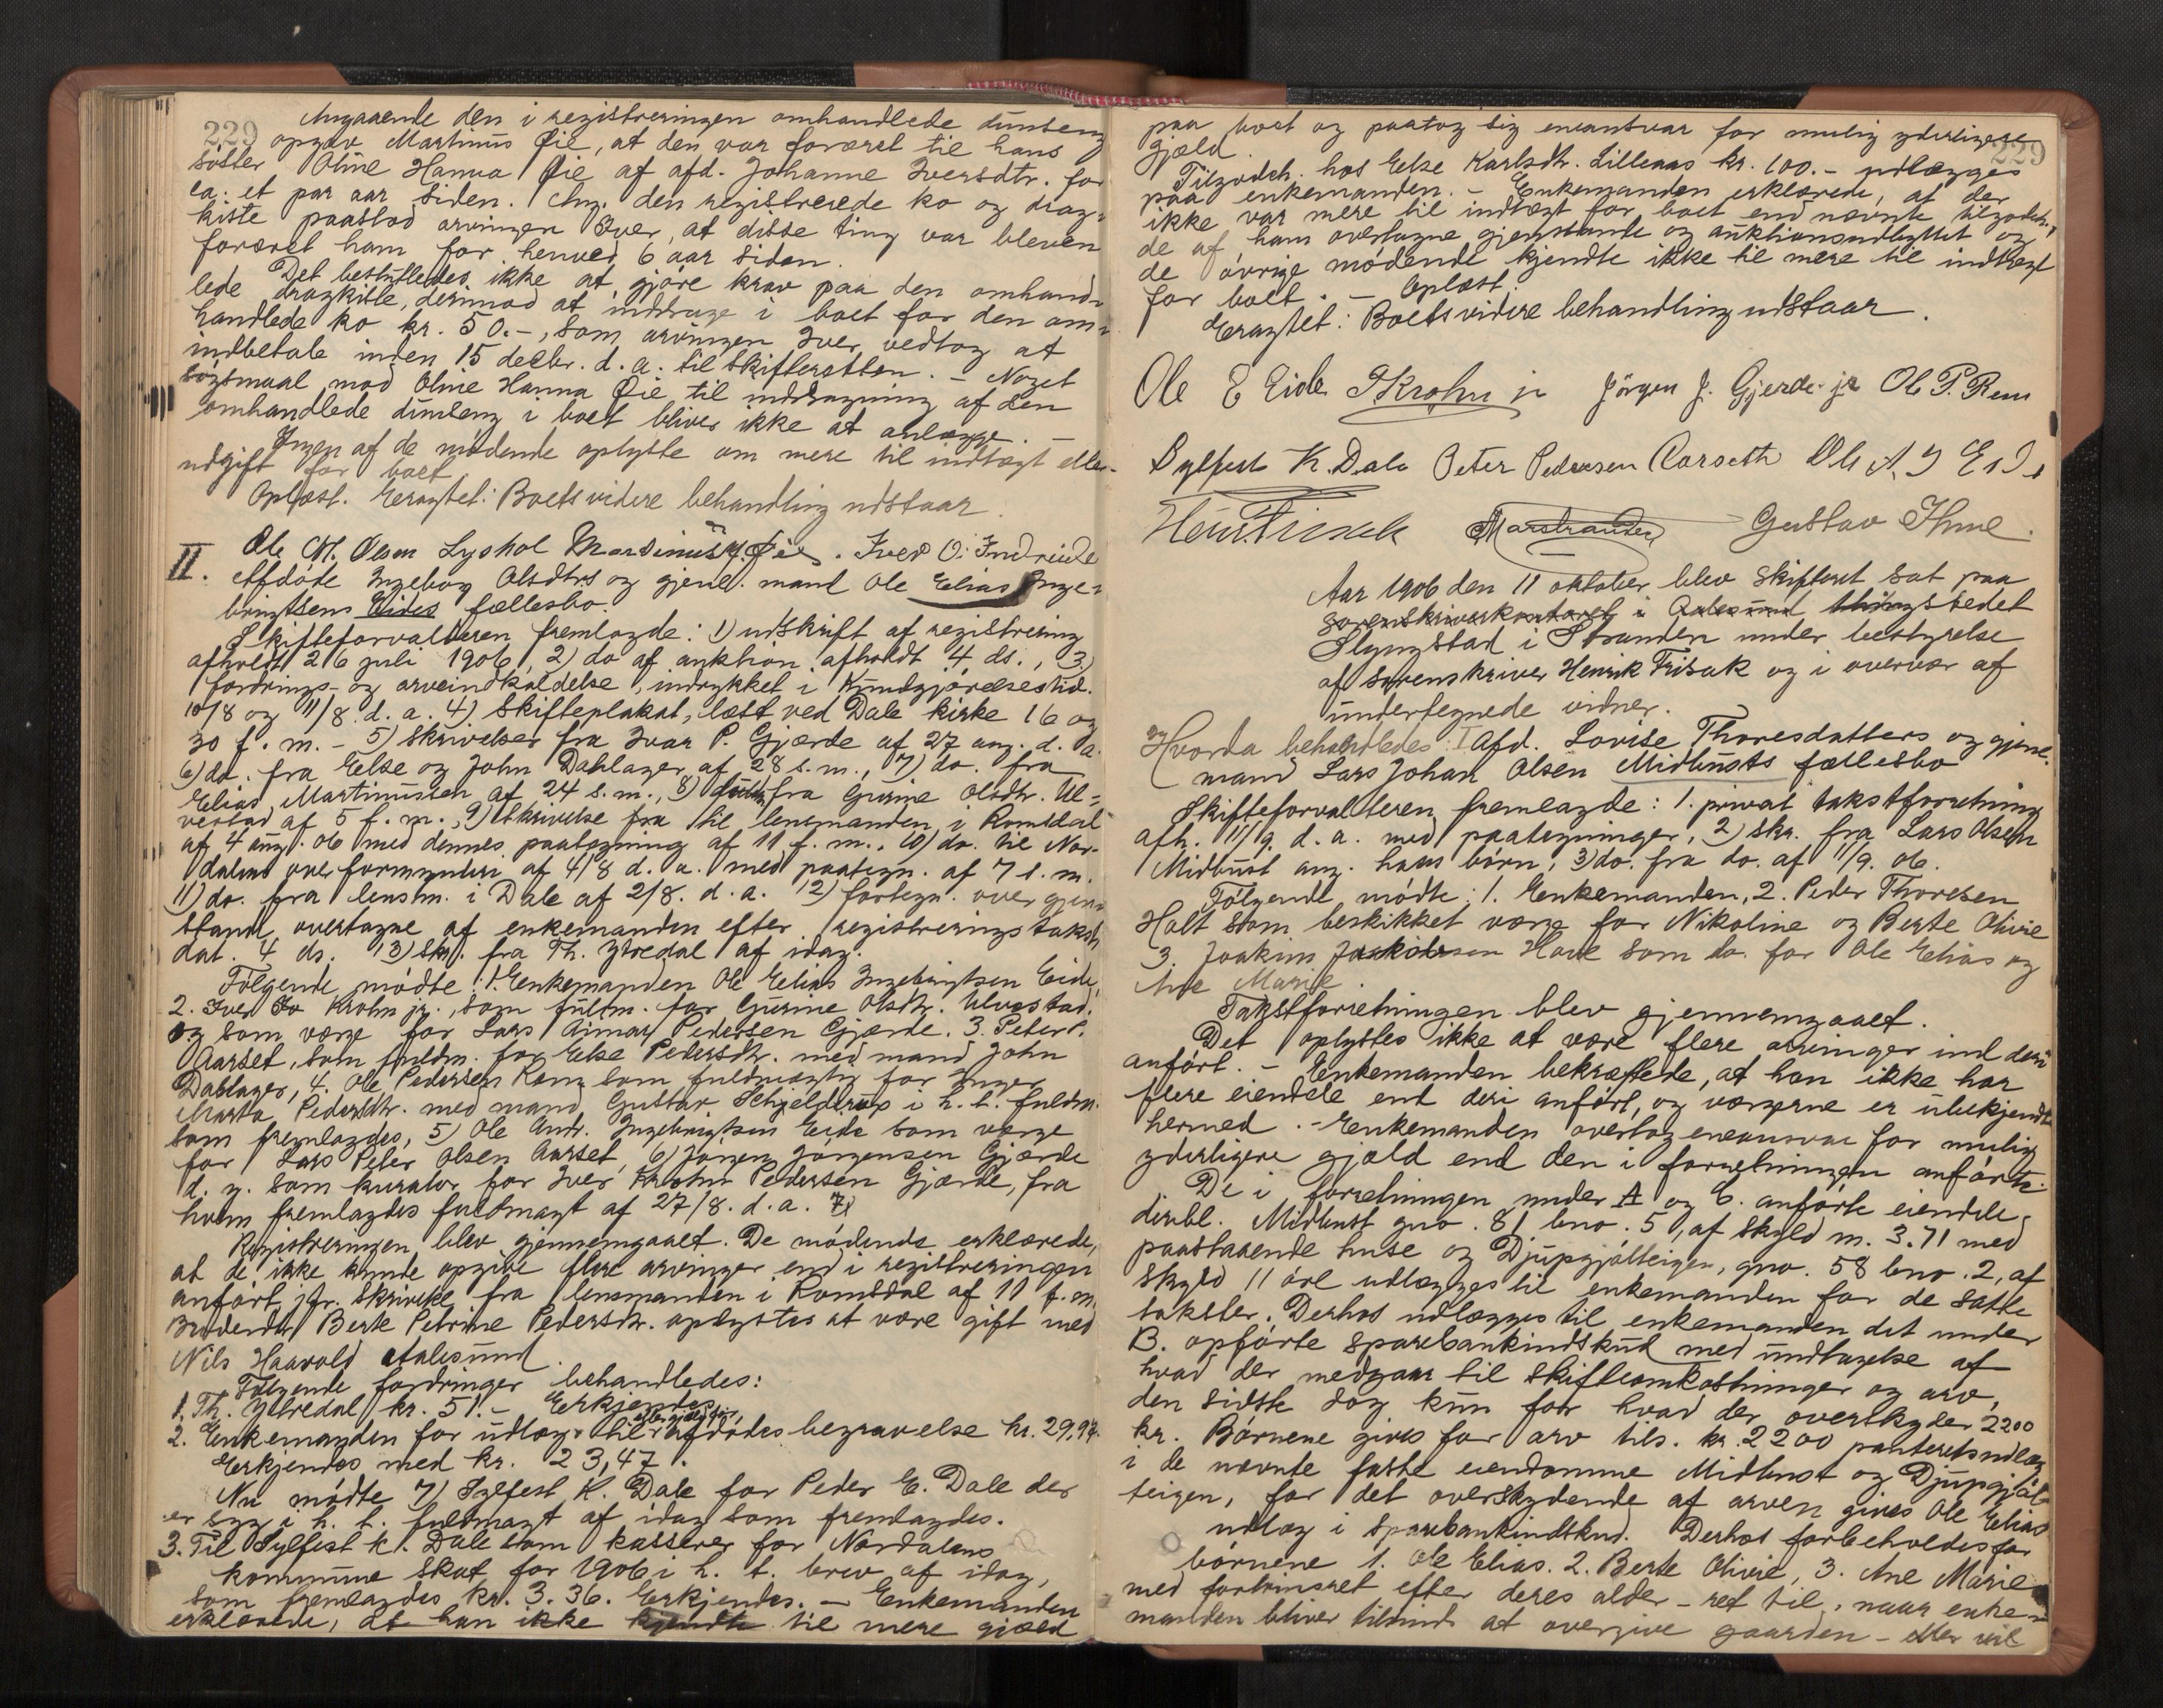 229
Angaaende den i registreringen omhandlede dunseng
opgav Martinus Øie, at den var foræret til hans
söster Oline Hanna Øie af afd. Johanne Iversdtr. for
ca. et par aar siden. Ang. den registrerede ko og drag-
kiste paastod arvingen Iver, at disse ting var bleven
foræret ham for henved 6 aar siden.
Det besluttedes ikke at gjöre krav paa den omhand-
lede dragkiste, derimod at inddrage i boet for den om-
handlede ko kr. 50.-, som arvingen Iver vedtog at
indbetale inden 15 decbr. d. a. til skifteretten. - Noget
sögsmaal mod Oline Hanna Øie til inddragning af den
omhandlede dunseng i boet bliver ikke at anlægge. -
Ingen af de mödende oplyste om mere til indtægt eller
udgift for boet
Oplæst. Eragtet: Boets videre behandling udstaar.
Ole M. Olsen Lyshol Martinus Øie. Iver O. Indreeide
II. Afdöde Ingeborg Olsdtrs og gjenl. mand Ole Elias Inge-
brigtsens Eides fællesbo.
Skifteforvalteren fremlagde: 1) udskrift af registrering
afholdt 26 juli 1906, 2) do af auktion afholdt 4 ds., 3)
fordrings- og arveindkaldelse, indrykket i Kundgjörelsestid.
10/8 og 11/8. d. a. 4) Skifteplakat, læst ved Dale kirke 16 og
30 f. m. - 5) skrivelser fra Ivar P. Gjærde af 27 aug. d. a.
6) do. fra Else og John Dahlager af 28 s. m., 7) do. fra
Elias Martinussen af 24 s. m., 8) fra Gurine Olsdtr. Ul-
vestad af 5 f. m., 9) Skrivelse fra til lensmanden i Romsdal
af 4 aug. 06 med dennes paategning af 11 f. m., 10) do. til Nor-
dalens overformynderi af 4/8 d. a. med paategn. af 7 s. m.
11) do. fra lensm. i Dale af 2/8. d. a. 12) fortegn. over gjen-
stande overtagne af enkemanden efter registreringstakst,
dat. 4 ds. 13) skr. fra Th. Ytredal af idag.
Følgende mödte: 1. Enkemanden Ole Elias Ingebrigtsen Eide,
2. Iver Krohn jr., som fuldm. for Gurine Olsdtr. Ulvestad.
og som værge for Lars Aimar Pedersen Gjærde. 3. Peter P.
Aarset, som fuldm. for Else Pedersdtr. med mand John
Dahlager, 4. Ole Pedersen Rem som fuldmægtig for Inger
Marta Pedersdtr. med mand Gustav Schjelderup i h. t. fuldm.
som fremlagdes, 5) Ole Andr. Ingebrigtsen Eide som værge
for Lars Peter Olsen Aarset, 6) Jörgen Jörgensen Gjærde
d. y. som kurator for Iver Krohn Pedersen Gjærde, fra
hvem fremlagdes fuldmagt af 27/8. d. a. 7)
Registreringen blev gjennemgaaet. De mödende erklærede,
at de ikke kunde opgive flere arvinger end i registreringen
anfört, jfr. skrivelse fra lensmanden i Romsdal af 11 f. m.
Broderdtr. Berte Petrine Pedersdtr. oplystes at være gift med
Nils Haavold Aalesund.
Følgende fordringer behandledes:
1. Th. Ytredal kr. 51.- Erkjendes.
2. Enkemanden for udlæg til afdödes begravelse kr. 29,94.
Erkjendes med kr. 23,47.
Nu mödte 7) Sylfest K. Dale for Peder E. Dale der
er syg i h. t. fuldmagt af idag som fremlagdes.
3. Til Sylfest K. Dale som kasserer for Nordalens
kommune skat for 1906 i h. t. brev af idag,
som fremlagdes kr. 3.36. Erkjendes. - Enkemanden
erklærede, at han ikke kjendte til mere gjæld
229
paa boet og paatog sig eneansvar for mulig yderligere
gjæld.
Tilgodeh. hos Else Karlsdtr. Lillenaas kr. 100.- udlægges
paa enkemanden. - Enkemanden erklærede, at der
ikke var mere til indtægt for boet end nævnte tilgodeh.,
de af ham overtagne gjenstande og auktionsudbyttet og
de övrige mödende kjendte ikke til mere til indtægt
for boet. - Oplæst.
Eragtet: Boets videre behandling udstaar.
Ole E Eide I Krohn jr Jörgen J. Gjerde jr Ole P. Rem
Sylfest K. Dale Peter Pedersen Aarseth Ole A. I Eide
Henr. Frisak Marstrander Gustav Thue.
Aar 1906 den 11 oktober blev skifteret sat paa
sorenskriverkontoret i Aalesund thingstedet
Slyngstad i Stranden under bestyrelse
af sorenskriver Henrik Frisak og i overvær af
undertegnede vidner.
Hvorda behandledes: I Afd. Lovise Thoresdatters og gjenl.
mand Lars Johan Olsen Midtbusts fællesbo
Skifteforvalteren fremlagde: 1. privat takstforretning
afh. 11/9. d. a. med paategninger, 2) skr. fra Lars Olsen
Midtbust ang. hans börn, 3) do. fra do. af 11/9. 06.
Følgende mödte: 1. Enkemanden, 2. Peder Thoresen
Holt som beskikket værge for Nikoline og Berte Olivie
3. Joakim Jaskobsen Hove som do. for Ole Elias og
Ane Marie.
Takstforretningen blev gjennemgaaet.
Det oplystes ikke at være flere arvinger end deri
anfört. - Enkemanden bekræftede, at han ikke har
flere eiendele end deri anfört, og værgerne er ubekjendt
hermed. - Enkemanden overtog eneansvar for mulig
yderligere gjæld end den i forretningen anförte.
De i forretningen under A og C. anförte eiendele
deribl. Midtbust gno. 81 bno. 5, af skyld m. 3.71 med
paastaaende huse og Djupgjölteigen, gno. 58 bno. 2, af
skyld 11 öre udlægges til enkemanden for de satte
takster. Derhos udlægges til enkemanden det under
B. opförte sparebankindskud med undtagelse af
hvad der medgaar til skifteomkostninger og arv,
den sidste dog kun for hvad der overskyder 2200
kr. Börnene gives for arv tils. kr. 2200 panteretsudlæg
i de nævnte faste eiendomme Midtbust og Djupgjöl-
teigen, for det overskydende af arven gives Ole Elias
udlæg i sparebankindskud. Derhos forbeholdes for
börnene 1. Ole Elias. 2. Berte Olivie, 3. Ane Marie
med fortrinsret efter deres alder - ret til, naar enke-
manden bliver tilsinds at overgive gaarden - eller vil